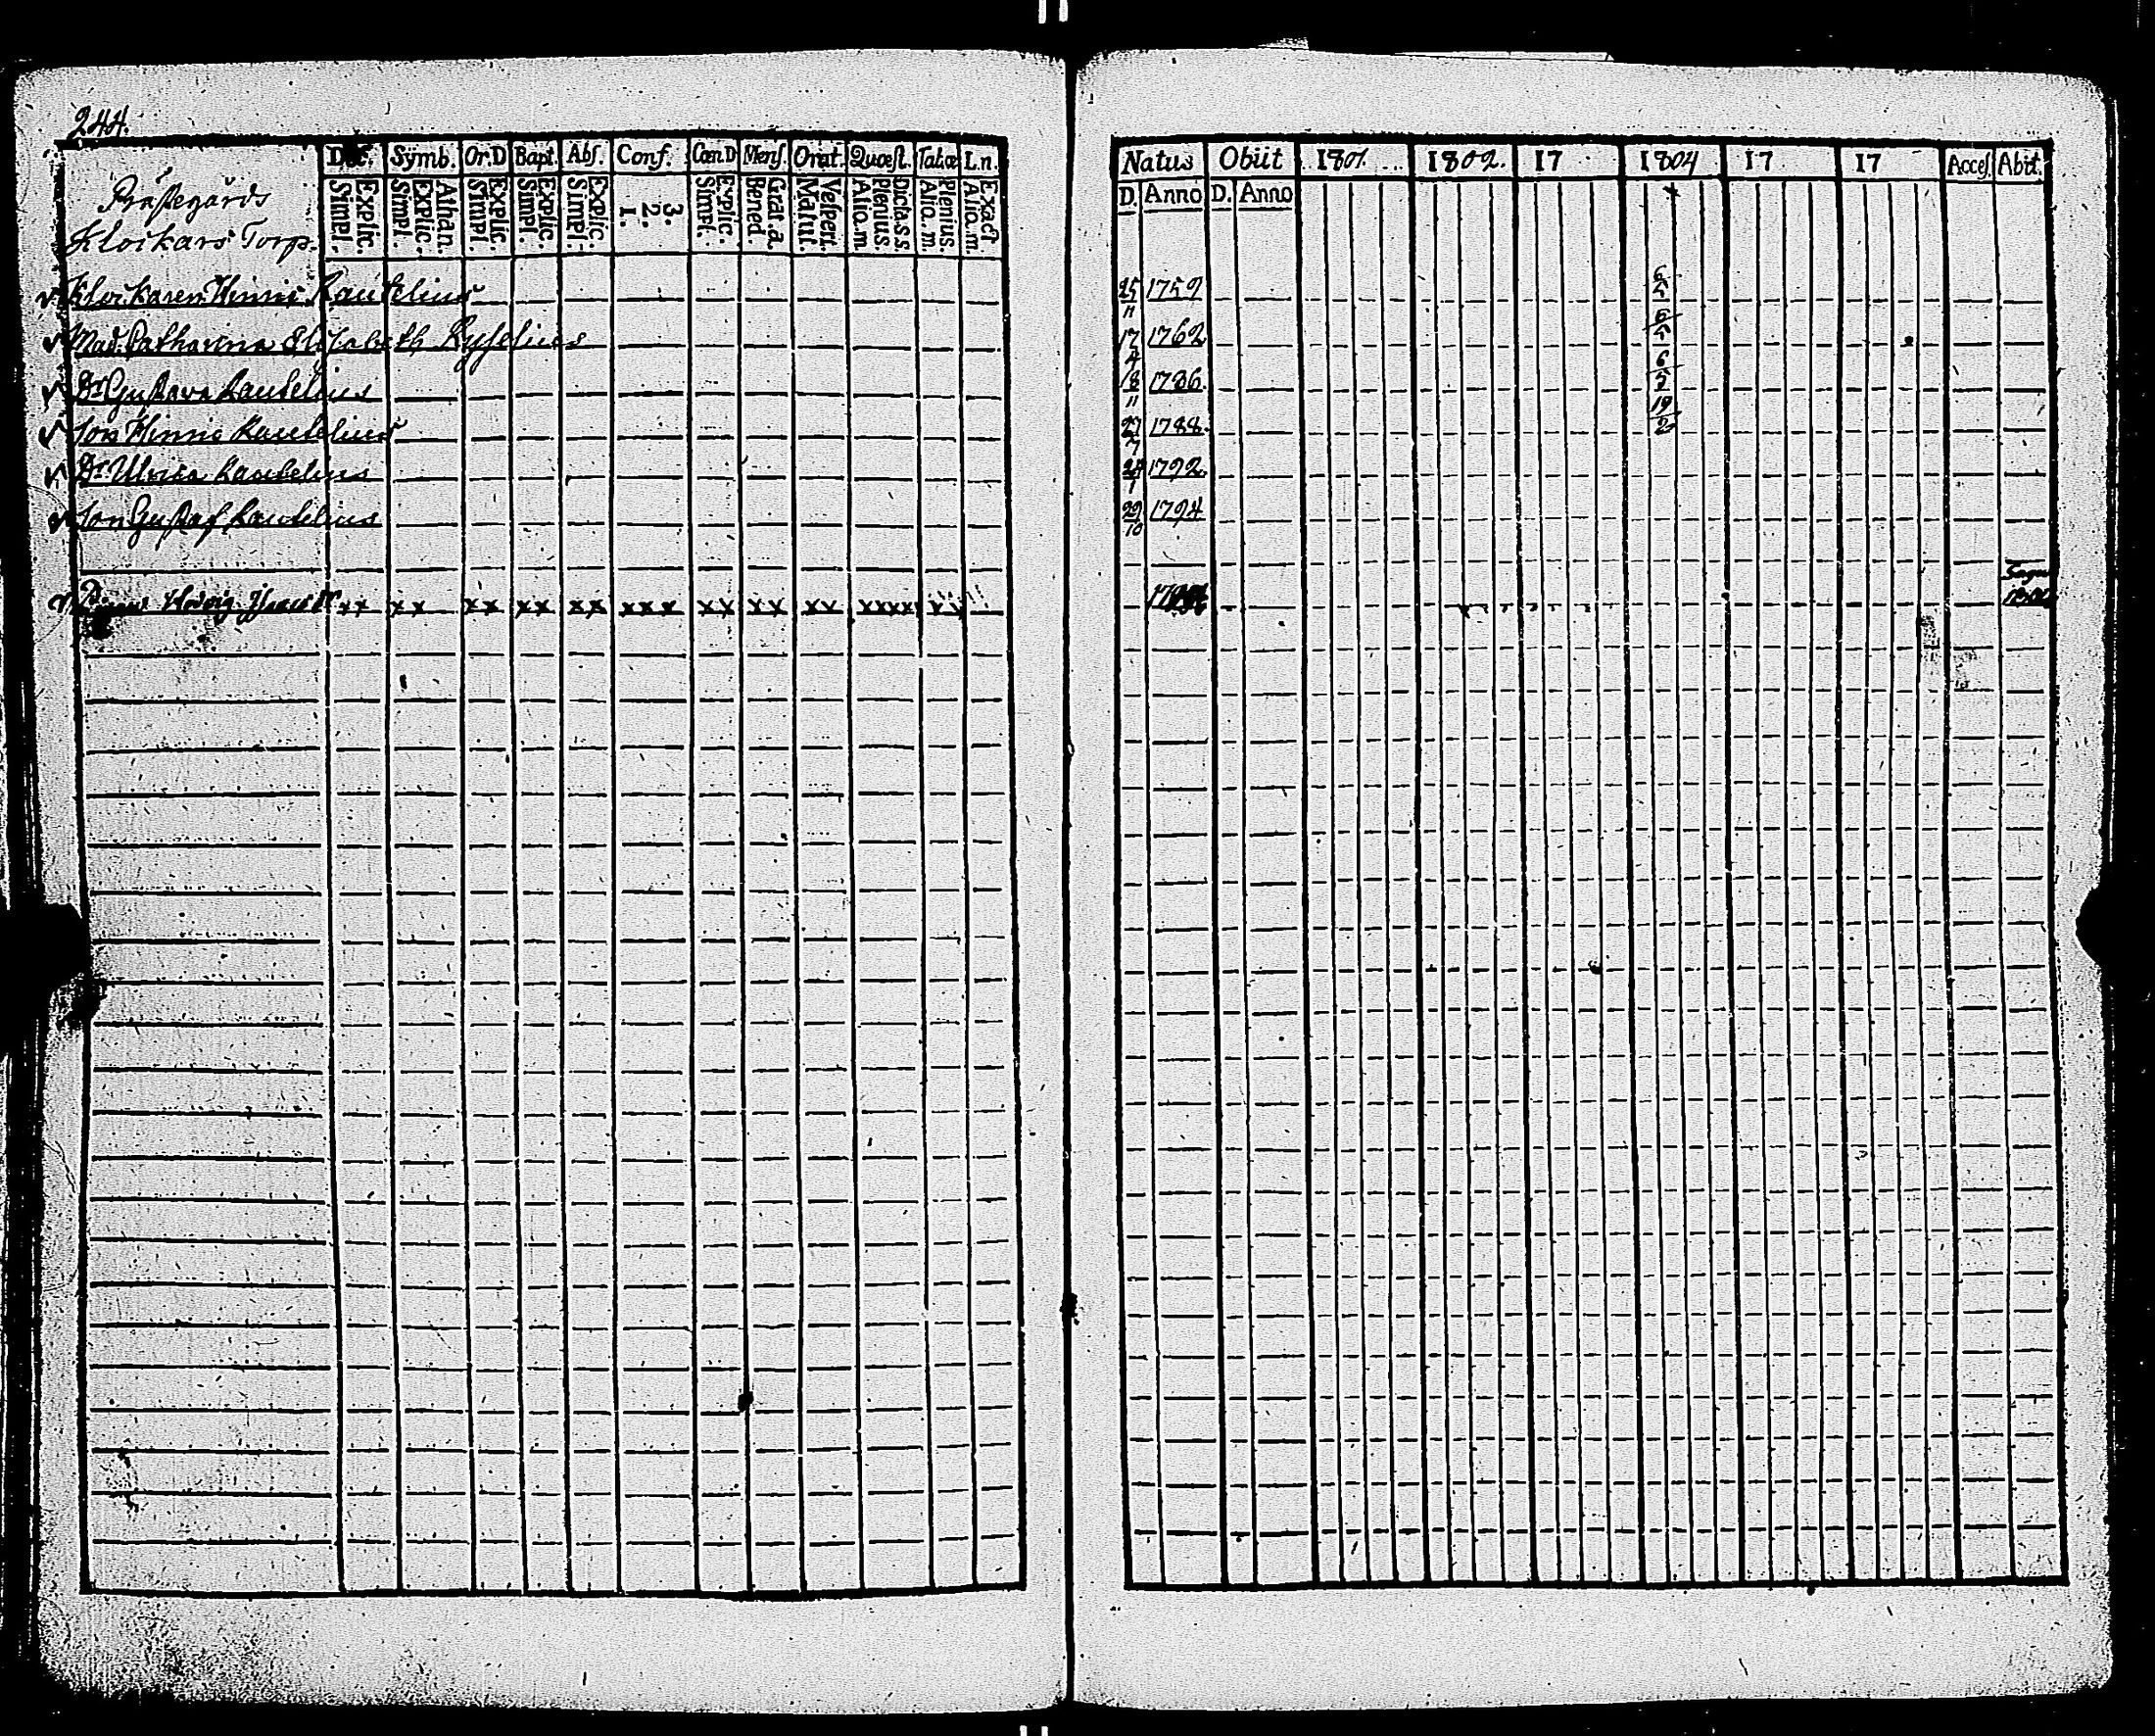 244.
Dec. Symb. Or.D Bapt. Abs. Conf. Cœn.D Mens. Orat. Quæst. Tab.œ L.n.
Simpl. Explic. Simpl. Explic. Athan. Simpl. Explic. Simpl. Explic. Simpl. Explic. 1. 2. 3. Simpl. Explic. Bened. Grat.a. Matut. Vespert. Alio.m. Plenius. Dicta.s.s. Alio.m. Plenius. Alio.m. Exact
Prästegårds
Klockars Torp.
Klockaren Hinric Raukelius
Mad. Catharina Elisabeth Ryselius
Dr Gustava Raukelius
Son Hinric Raukelius
Dr Ulrica Raukelius
Son Gustaf Raukelius
Hedvig xx xx xx xx xx xxx xx xx xx xxxx xx
Natus Obiit 1801. 1802. 17 1804 17 17 Acces. Abit.
D. Anno D. Anno
25/11 1759 6/5
17/4 1762 6/5
18/11 1786. 6/5
27/7 1788. 19/2
24/1 1792.
29/10 1794